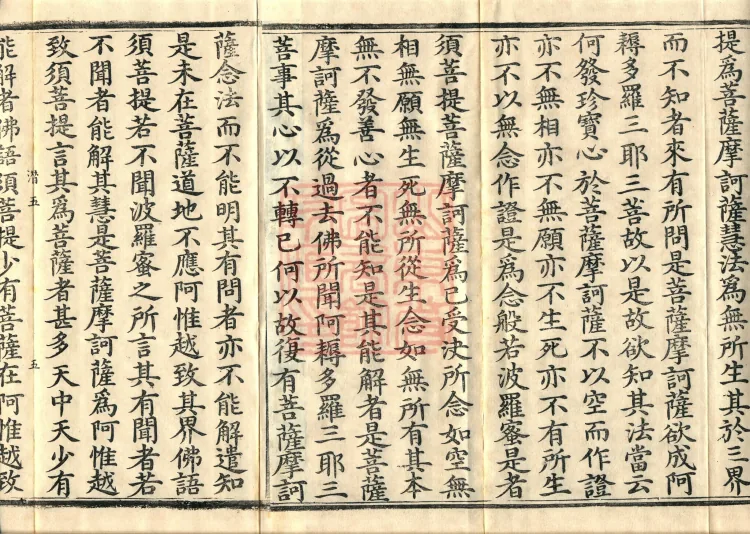 提為菩薩摩訶薩慧法為無所生其於三界
而不知者來有所問是菩薩摩訶薩欲成阿
耨多羅三耶三菩故以是故欲知其法當云
何發珍寶心於菩薩摩訶薩不以空而作證
亦不無相亦不無願亦不生死亦不有所生
亦不以無念作證是為念般若波羅蜜是者
須菩提菩薩摩訶薩為已受決所念如空無
相無願無生死無所從生念如無所有其本
無不發善心者不能知是其能解者是菩薩
摩訶薩為從過去佛所聞阿耨多羅三耶三
菩事其心以不轉已何以故復有菩薩摩訶
薩念法而不能明其有問者亦不能解遣知
是未在菩薩道地不應阿惟越致其界佛語
須菩提若不聞波羅蜜之所言其有聞者若
不聞者能解其慧是菩薩摩訶薩為阿惟越
致須菩提言其為菩薩者甚多天中天少有
潜五
五
能解者佛語須菩提少有菩薩在阿惟越致